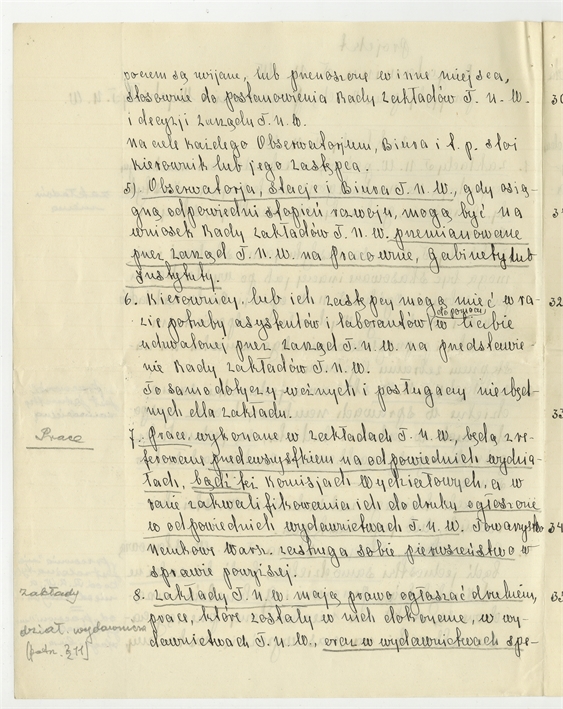 poczem są zwijane, lub przenoszone w inne miejsca,
stosownie do postanowienia Rady Zakładów T. N. W.
i decyzji Zarządu T. N. W.
Na czele każdego Obserwatorjum, Biura i t. p. stoi
Kierownik lub jego Zastępca.
5) Obserwatorja, Stacje i Biura T. N. W., gdy osią-
gną odpowiedni stopień rozwoju, mogą być na
wniosek Rady Zakładów T. N. W. przemianowane
przez Zarząd T. N. W. na Pracownie, Gabinety lub
Instytuty.
6. Kierownicy lub ich zastępcy mogą mieć w ra-
do pomocy
zie potrzeby asystentów i laborantów w liczbie
uchwalonej przez Zarząd T. N. W. na przedstawie-
nie Rady Zakładów T. N. W.
To samo dotyczy woźnych i posługaczy niezbęd-
nych dla zakładu.
Prace
7. Prace, wykonane w Zakładach T. N. W., będą zre-
ferowane przedewszystkiem na odpowiednich wydzia-
łach, bądź ki Komisjach Wydziałowych, a w
razie zakwalifikowania ich do druku ogłoszone
w odpowiednich wydawnictwach T. N. W. Towarzystwo
Naukowe Warsz. zastrzega sobie pierwszeństwo w
sprawie powyższej.
Zakłady
8. Zakłady T. N. W. mają prawo ogłaszać drukiem,
prace, które zostały w nich dokonane, w wy-
dział. wydawnicza
dawnictwach T. N. W., oraz w wydawnictwach spe-
30
32
33
34